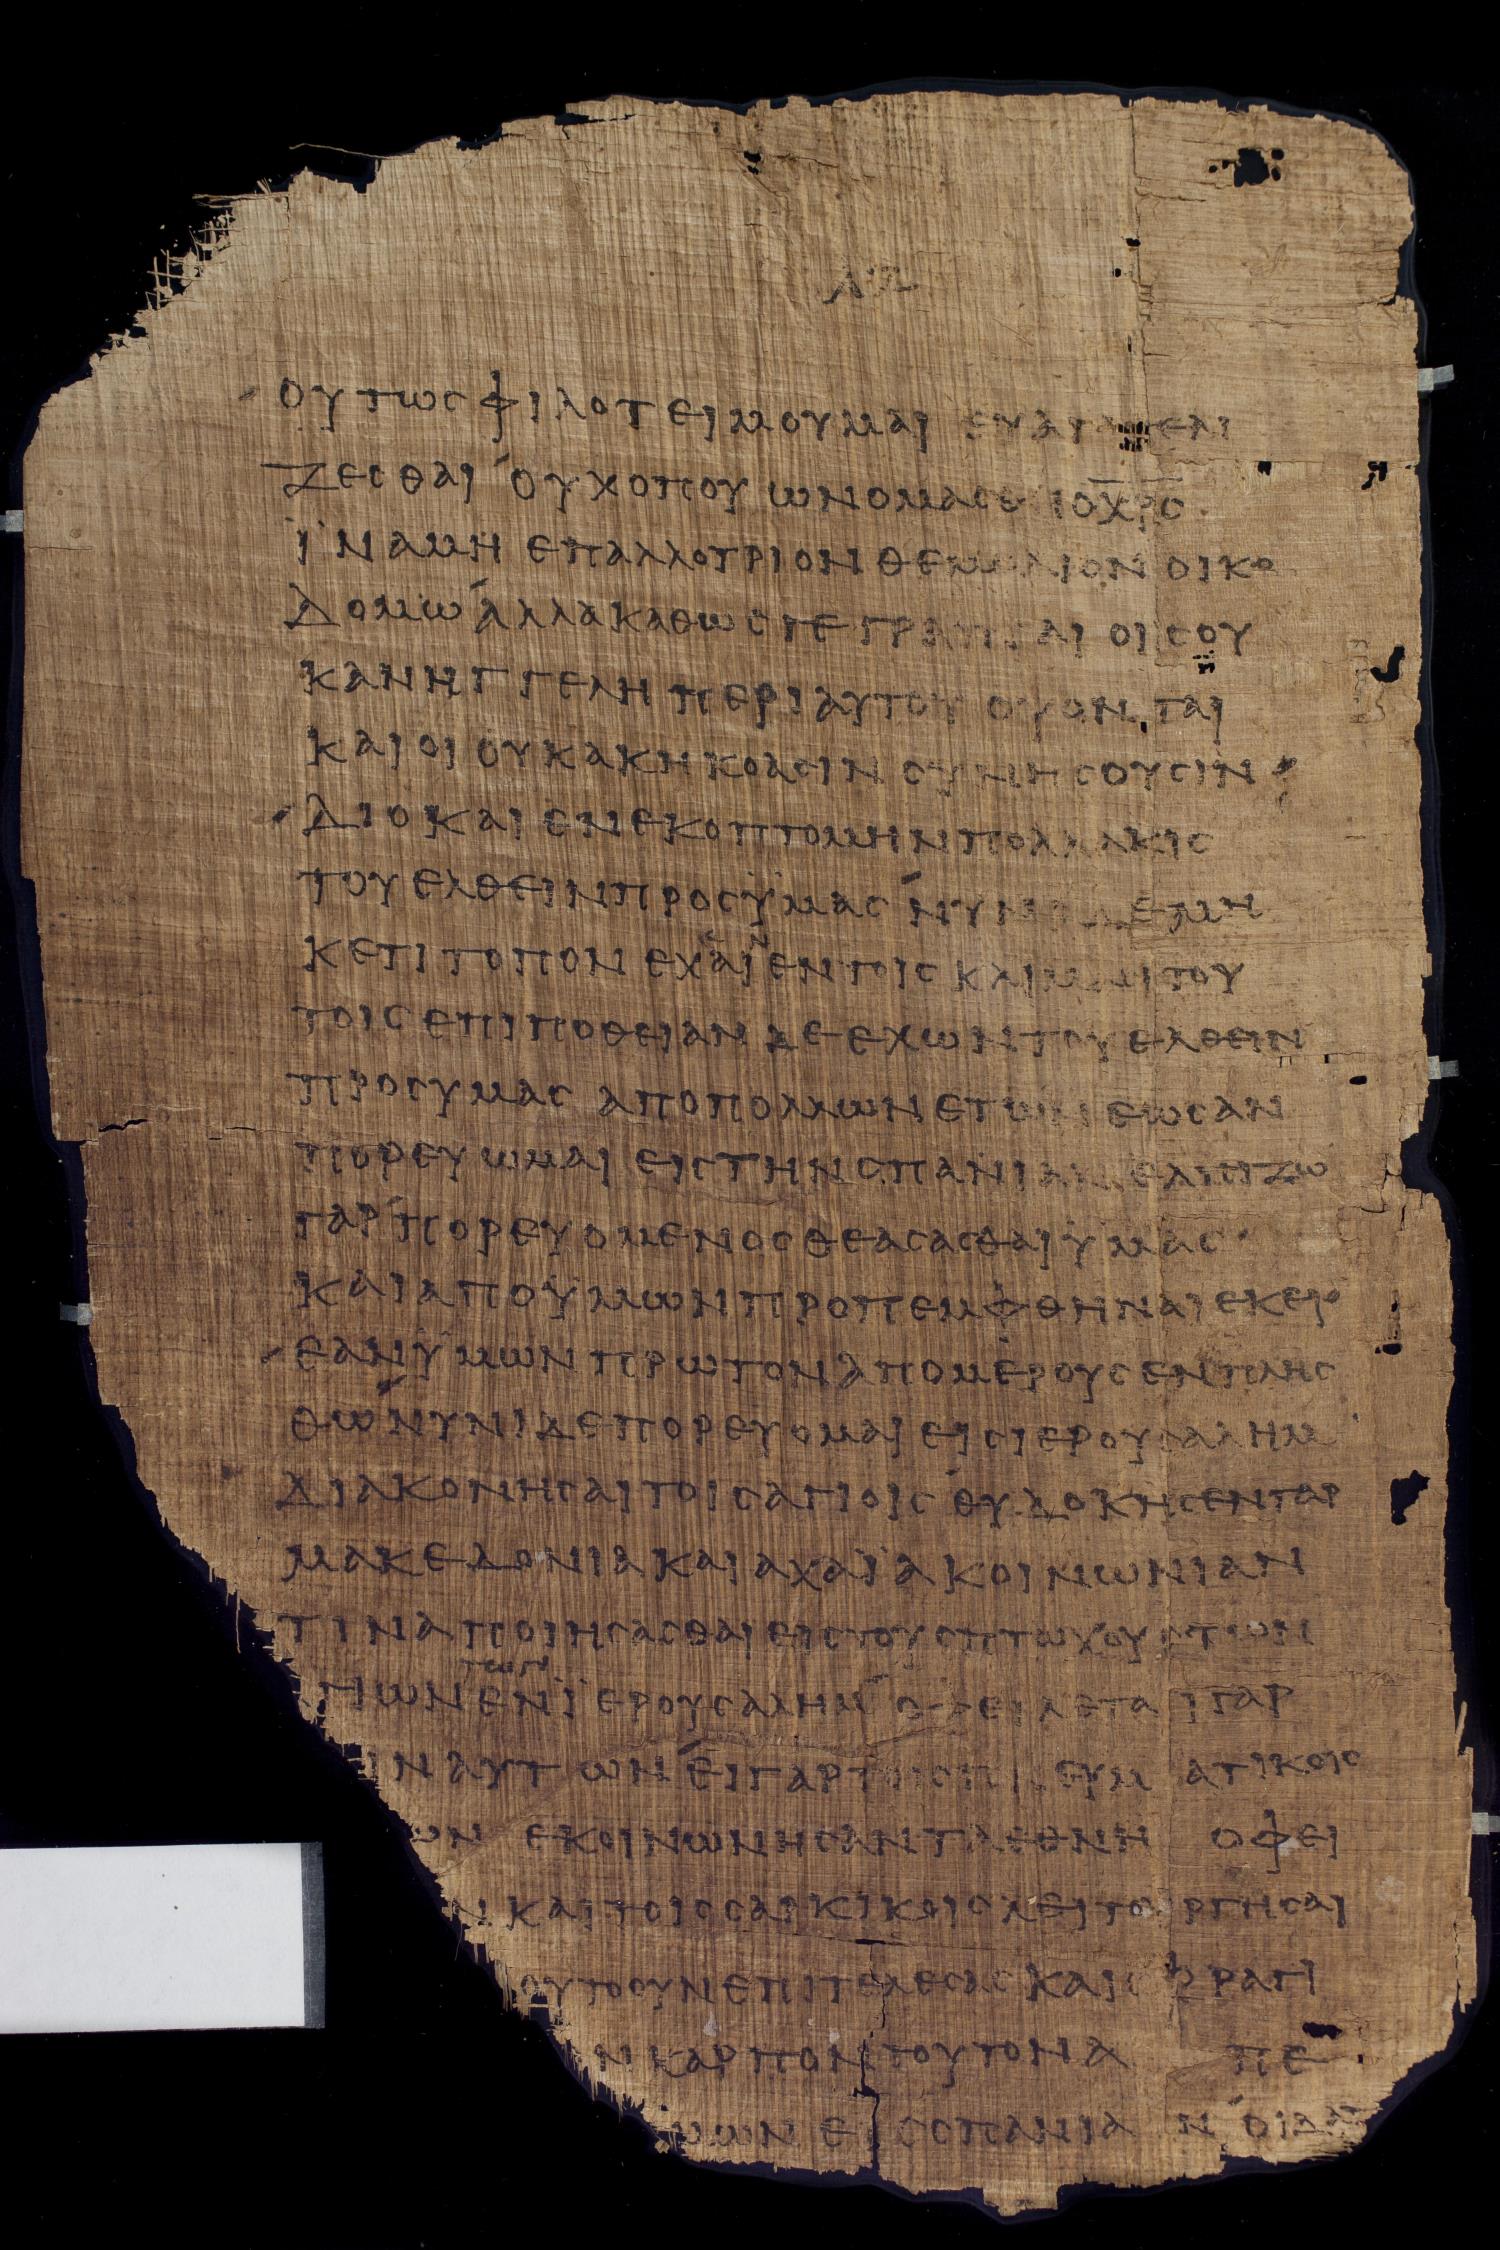 ουτωςφιλοτειμουμαι ευαγγελι
ζεσθαι ουχοπου ωνομασθηο χρς
ϊναμη επαλλοτριονθεμελιον οικο
δομω αλλακαθωςγεγραπται οιςου
κανηγγελη περιαυτου οψονται
καιοι ουκακηκοασιν συνησουσιν
διοκαι ενεκοπτομηνπολλακις
τουελθεινπροςϋμας νυνιδεμη
κετιτοπον εχων εντοις κλιμασιτου
τοιςεπιποθειαν δεεχωντουελθειν
προςυμας αποπολλωνετων εωςαν
πορευωμαι ειςτηνσπανιαν ελπιζω
γαρπορευομενοςθεασασθαιϋμας
καιαποϋμωνπροπεμφθηναιεκει
εανϋμωνπρωτοναπομερουςενπλης
θωνυνιδεπορευομαι ειςιερουσαλημ
διακονησαιτοιςαγιοις ευδοκησενγαρ
μακεδονιακαιαχαϊακοινωνιαν
τιναποιησασθαιειςτουςπτωχουςτων
των
γιωνενϊερουσαλημ οφειλεταιγαρ
ιναυτων ειγαρτοιςπνευματικοις
ων εκοινωνησανταεθνη οφει
ν καιτοιςσαρκικοιςλειτουργησαι
ουτοουνεπιτελεσαςκαισφραγι
ν καρπον τουτονα πε
υμων ειςσπανιαν οιδα